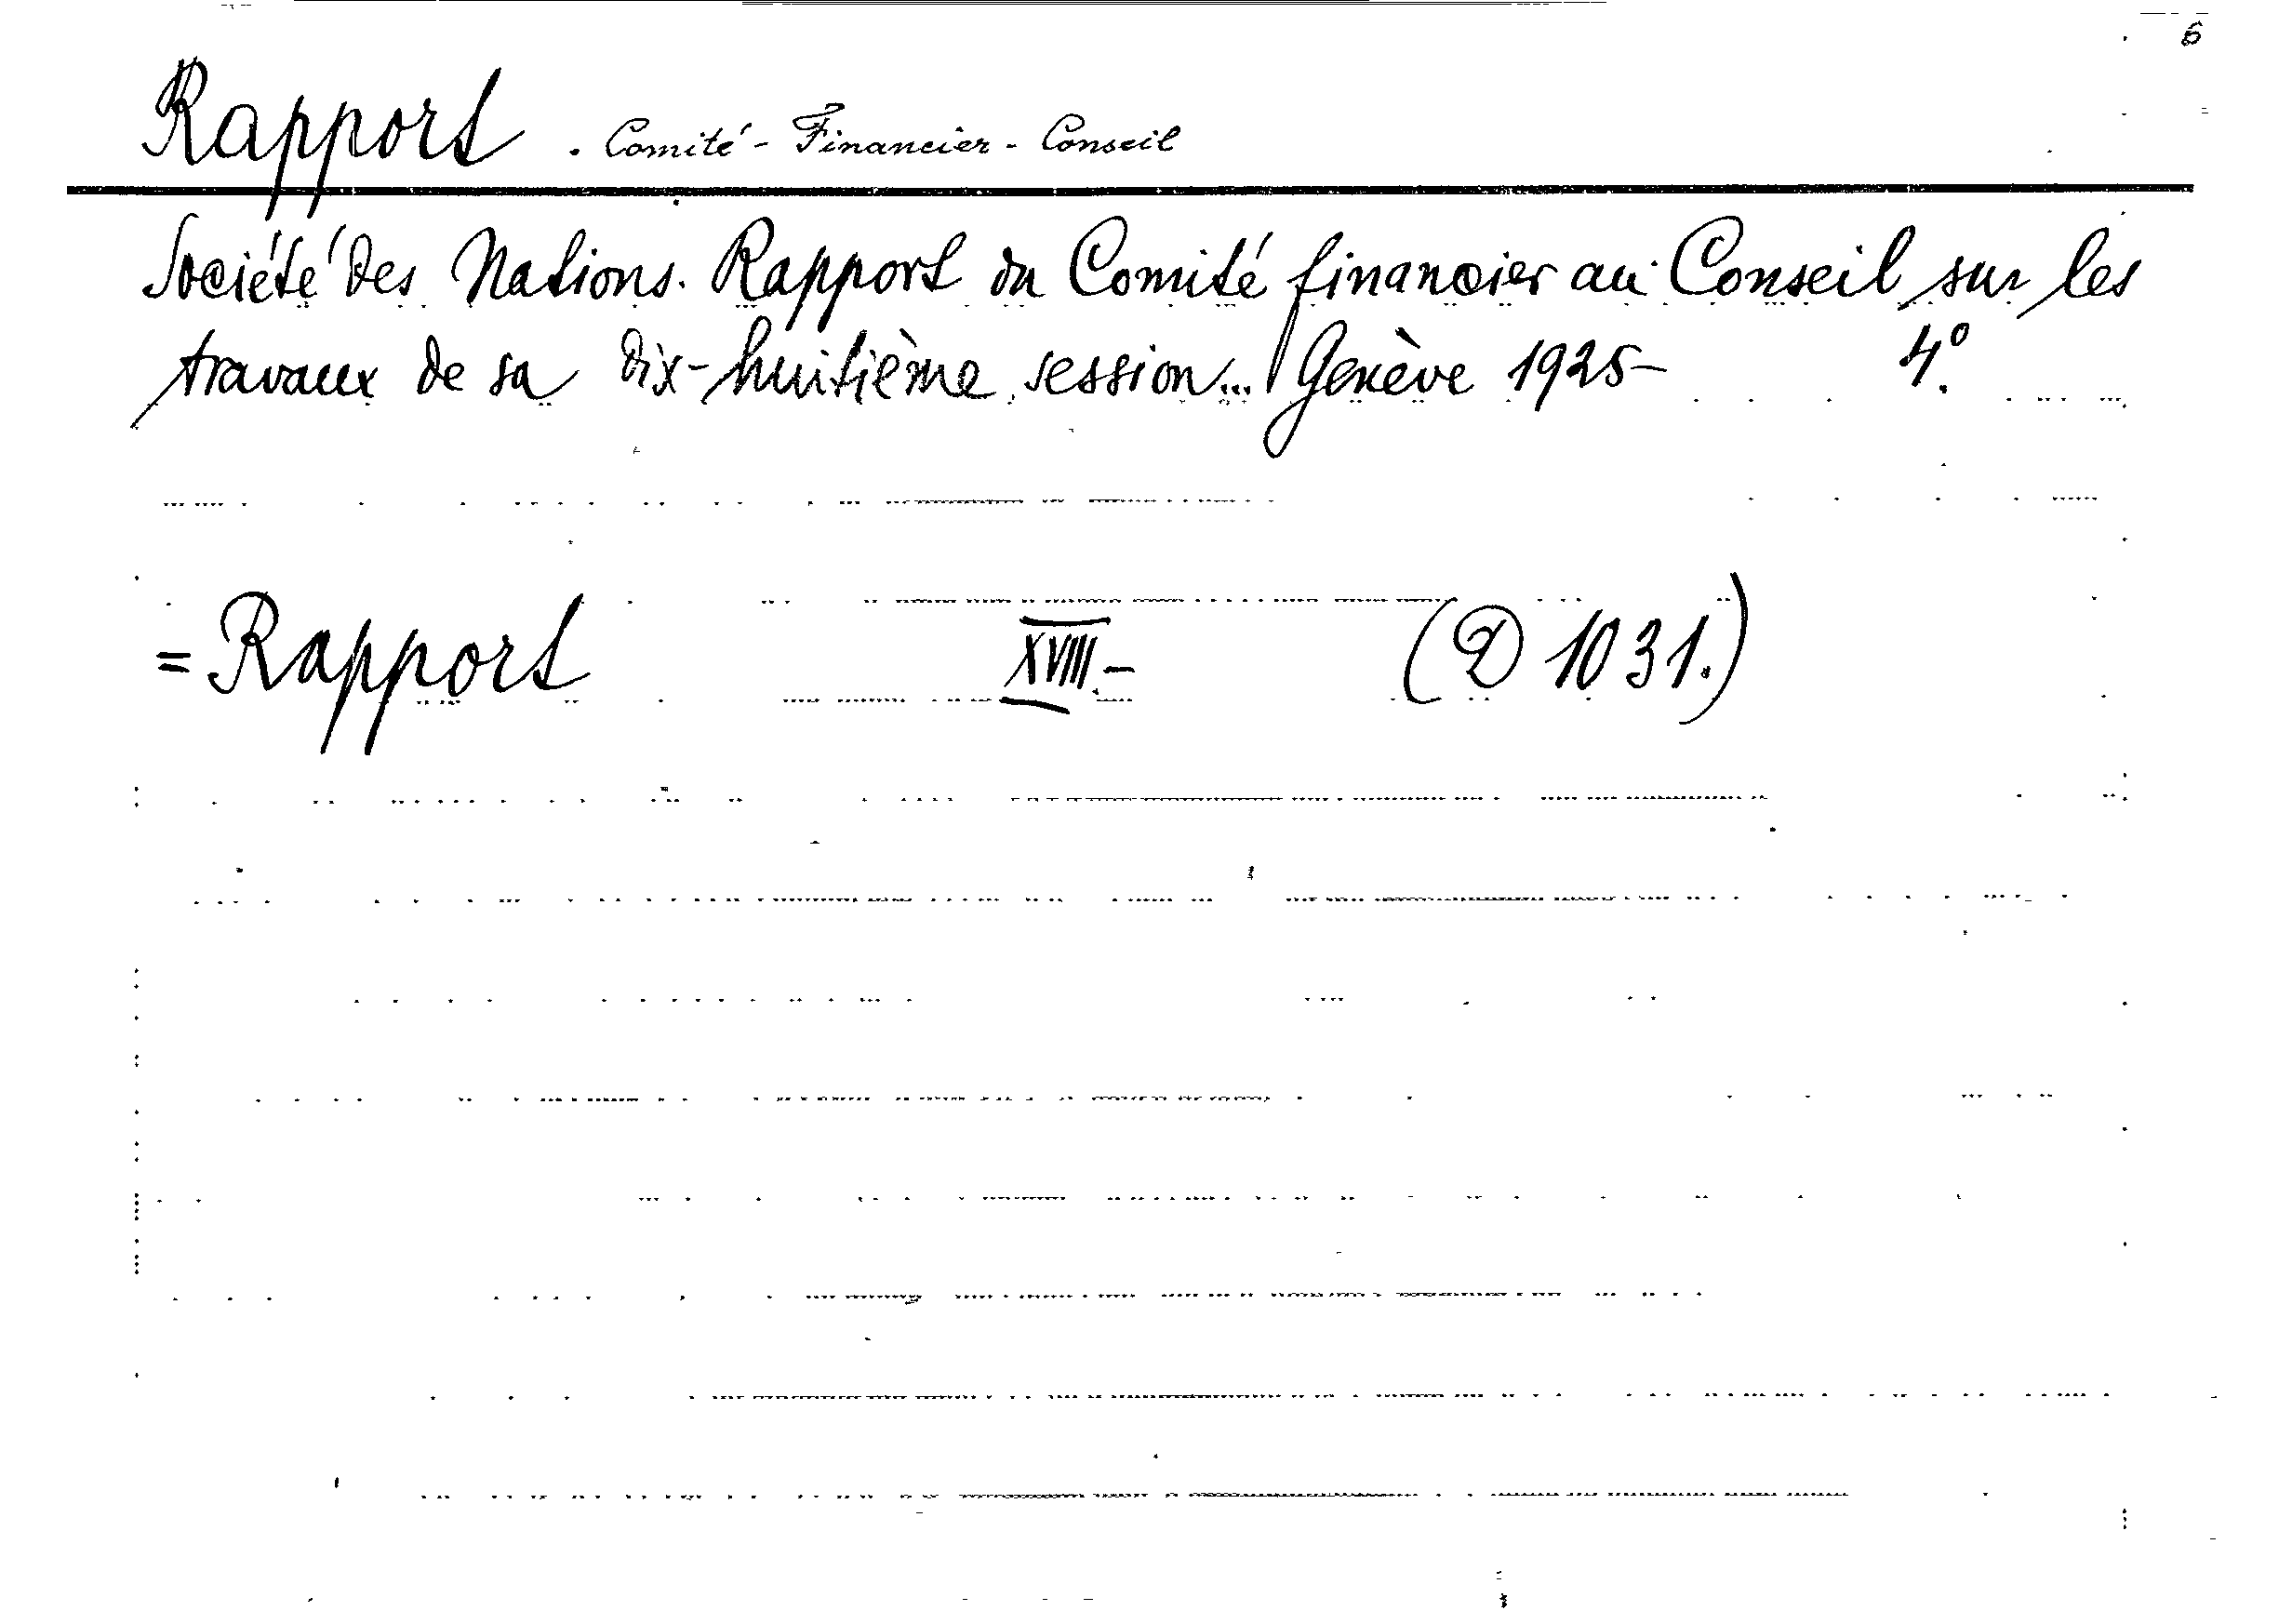 6
Rapport . Comité - Financier - Conseil
Société des Nations. Rapport du Comité financier au Conseil sur les
travaux de sa dix-huitième session... Genève 1925- 4º.
= Rapport XVIII.- (D 1031.)